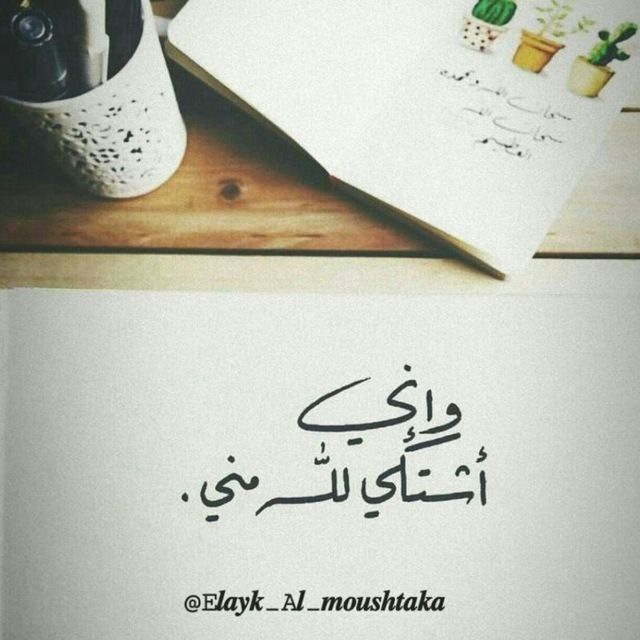 سبحان الله وبحمده
سبحان الله
العظيم
وإني
أشتكي لله مني.
@Elayk_Al_moushtaka